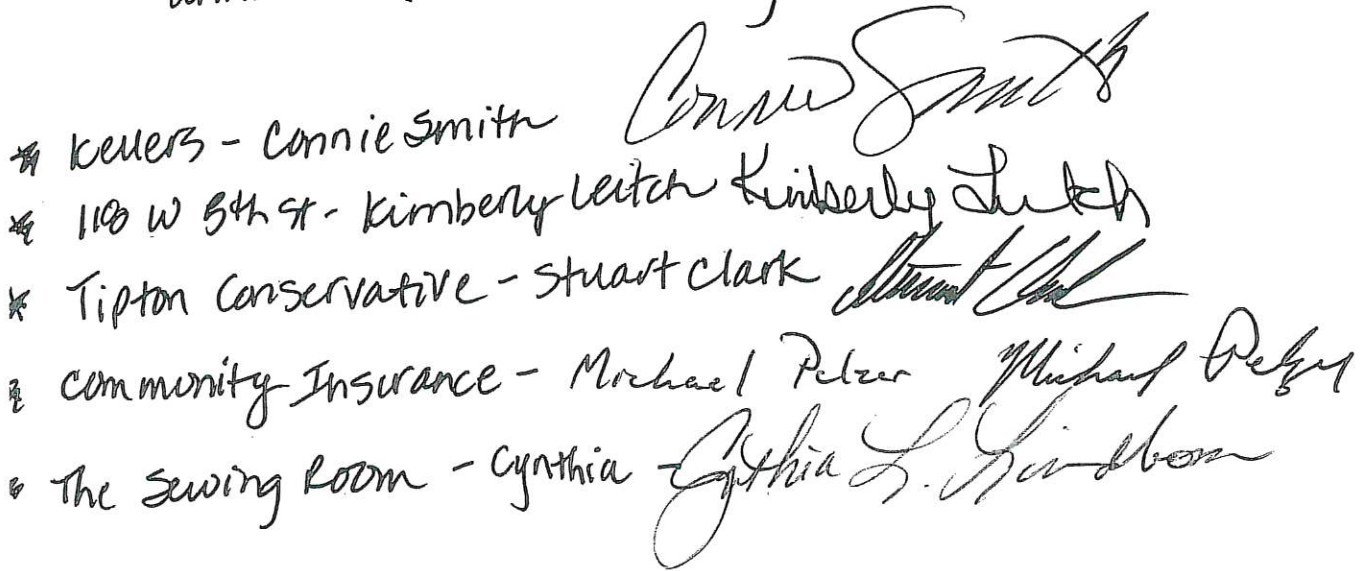 Kellers - Connie Smith Connie Smith
118 W 5th St - Kimberly Leitch Kimberly Leitch
Tipton Conservative - Stuart Clark Stuart Clark
Community Insurance - Michael Pelzer Michael Pelzer
The Sewing Room - Cynthia - Cynthia L. Lindbom